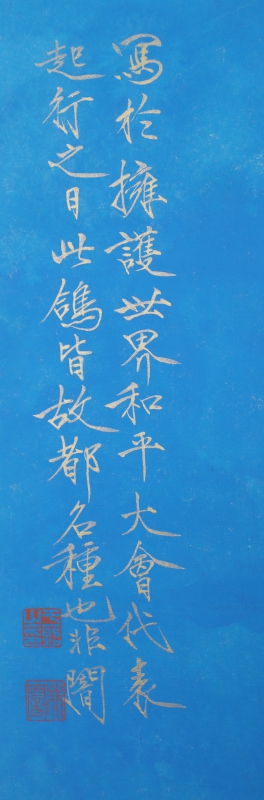 寫於擁護世界和平大會代表
起行之日此鴿皆故都名種也非闇